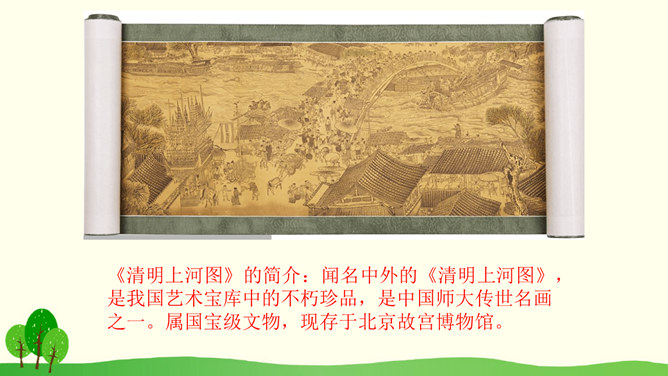 《清明上河图》的简介：闻名中外的《清明上河图》，
是我国艺术宝库中的不朽珍品，是中国师大传世名画
之一。属国宝级文物，现存于北京故宫博物馆。